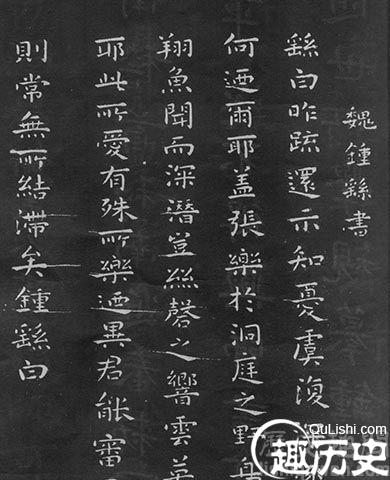 魏鍾繇書
繇白昨疏還示知憂虞復
何迺爾耶蓋張樂於洞庭之野
翔魚聞而深潜豈絲磬之響雲英
耶此所愛有殊所樂迺異君能審
則常無所結滯矣鍾繇白
QuLishi.com
趣历史